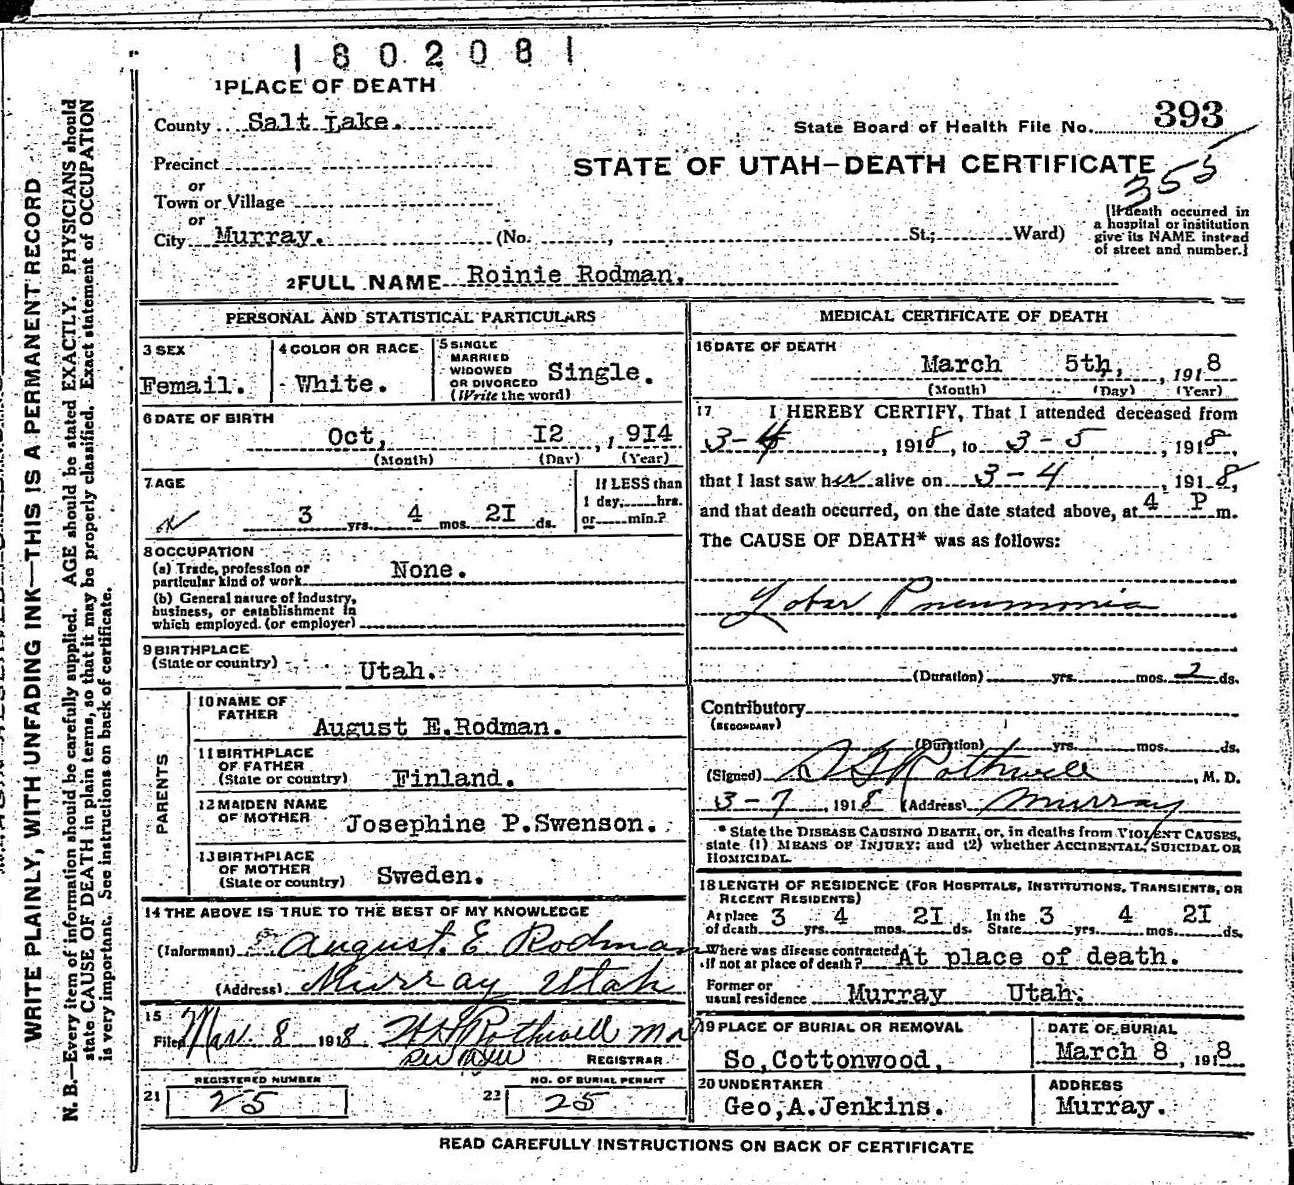 1802081
1 PLACE OF DEATH
County Salt Lake.
State Board of Health File No. 393
Precinct
STATE OF UTAH—DEATH CERTIFICATE
355
or
Town or Village
or
City Murray. (No. , St.; Ward)
[If death occurred in
a hospital or institution
give its NAME instead
of street and number.]
2 FULL NAME Roinie Rodman,
PERSONAL AND STATISTICAL PARTICULARS
3 SEX
Femail.
4 COLOR OR RACE
White.
5 SINGLE
MARRIED
WIDOWED
OR DIVORCED
(Write the word)
Single.
6 DATE OF BIRTH
Oct, I2 , 9I4
(Month) (Day) (Year)
7 AGE
3 yrs. 4 mos. 2I ds.
If LESS than
1 day, hrs.
or min.?
8 OCCUPATION
(a) Trade, profession or
particular kind of work None.
(b) General nature of industry,
business, or establishment in
which employed. (or employer)
9 BIRTHPLACE
(State or country) Utah.
PARENTS
10 NAME OF
FATHER
August E.Rodman.
11 BIRTHPLACE
OF FATHER
(State or country) Finland.
12 MAIDEN NAME
OF MOTHER Josephine P.Swenson.
13 BIRTHPLACE
OF MOTHER
(State or country) Sweden.
14 THE ABOVE IS TRUE TO THE BEST OF MY KNOWLEDGE
(Informant) August. E Rodman
(Address) Murray Utah
15
Filed Mar. 8 1918
Rothwell
REGISTRAR
REGISTERED NUMBER
21 25
NO. OF BURIAL PERMIT
22 25
MEDICAL CERTIFICATE OF DEATH
16 DATE OF DEATH
March 5th, , 1918
(Month) (Day) (Year)
17 I HEREBY CERTIFY, That I attended deceased from
3-4 , 1918, to 3-5 , 1918,
that I last saw her alive on 3-4 , 1918,
and that death occurred, on the date stated above, at 4 P m.
The CAUSE OF DEATH* was as follows:
Lobar Pneumonia
(Duration) yrs. mos. 2 ds.
Contributory
(SECONDARY)
(Duration) yrs. mos. ds.
(Signed) Rothwell , M. D.
3-7 , 1918 (Address) Murray
* State the DISEASE CAUSING DEATH, or, in deaths from VIOLENT CAUSES,
state (1) MEANS OF INJURY: and (2) whether ACCIDENTAL, SUICIDAL OR
HOMICIDAL.
18 LENGTH OF RESIDENCE (FOR HOSPITALS, INSTITUTIONS, TRANSIENTS, OR
RECENT RESIDENTS)
At place of death 3 yrs. 4 mos. 2I ds. In the State 3 yrs. 4 mos. 2I ds.
Where was disease contracted
if not at place of death? At place of death.
Former or
usual residence Murray Utah.
19 PLACE OF BURIAL OR REMOVAL
So,Cottonwood,
DATE OF BURIAL
March 8 , 1918
20 UNDERTAKER
Geo,A.Jenkins.
ADDRESS
Murray.
READ CAREFULLY INSTRUCTIONS ON BACK OF CERTIFICATE
WRITE PLAINLY, WITH UNFADING INK—THIS IS A PERMANENT RECORD
N. B.—Every item of information should be carefully supplied. AGE should be stated EXACTLY. PHYSICIANS should
state CAUSE OF DEATH in plain terms, so that it may be properly classified. Exact statement of OCCUPATION
is very important. See instructions on back of certificate.